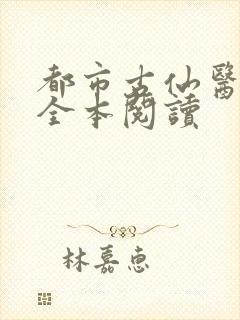 都市古仙醫
全本閱讀
林嘉惠